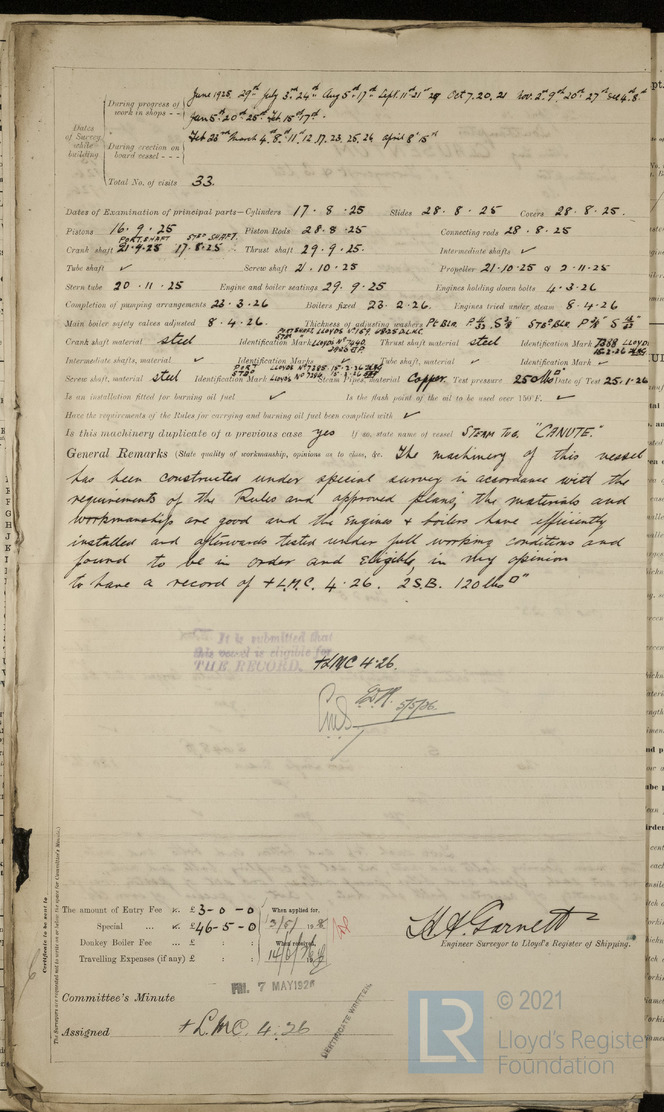 Dates of Survey while building
During progress of work in shops - - June 1925. 29th July 3rd 24th Aug 5th 17th Sept. 11th 21st 29 Oct 7. 20. 21 Nov. 2nd 9th 20th 27th Dec 4th 8th
Jan 5th 20th 25th Feb 15th 17th.
During erection on board vessel - - - Feb 23rd March 4. 8. 11. 12. 17. 23. 25. 26 April 8th 15th
Total No. of visits 33.
Dates of Examination of principal parts—Cylinders 17 . 8 . 25 Slides 28 . 8 . 25 Covers 28 . 8 . 25.
Pistons 16 . 9 . 25 Piston Rods 28 . 8 . 25 Connecting rods 28 . 8 . 25
PORT. SHAFT STBD SHAFT.
Crank shaft 21.9.25 17.8.25 Thrust shaft 29.9.25. Intermediate shafts ✓
Tube shaft ✓ Screw shaft 21.10.25 Propeller 21.10.25 & 2.11.25
Stern tube 20.11.25 Engine and boiler seatings 29.9.25 Engines holding down bolts 4.3.26
Completion of pumping arrangements 23.3.26 Boilers fixed 23.2.26. Engines tried under steam 8.4.26
Main boiler safety valves adjusted 8.4.26. Thickness of adjusting washers Pt Blr P 11/32 S 3/8 Stbd Blr P 3/8
Crank shaft material steel Identification Mark Thrust shaft material steel Identification Mark 7388 LLOYDS
Intermediate shafts, material ✓ Identification Marks ✓ Tube shaft, material ✓ Identification Mark ✓
Screw shaft, material steel Identification Mark Steam Pipes, material Copper Test pressure 250 lbs □" Date of Test 25.1.26
Is an installation fitted for burning oil fuel ✓ Is the flash point of the oil to be used over 150°F. ✓
Have the requirements of the Rules for carrying and burning oil fuel been complied with ✓
Is this machinery duplicate of a previous case yes If so, state name of vessel STEAM TUG. "CANUTE."
General Remarks (State quality of workmanship, opinions as to class, &c. The machinery of this vessel
has been constructed under special survey in accordance with the
requirements of the Rules and approved plans, the materials and
workmanship are good and the Engines & boilers have efficiently
installed and afterwards tested under full working conditions and
found to be in order and Eligible, in my opinion
to have a record of +L.M.C. 4.26. 2S.B. 120 lbs □"
It is submitted that
this vessel is eligible for
THE RECORD. +LMC 4.26.
5/5/26.
The amount of Entry Fee .. £ 3 - 0 - 0 When applied for,
Special ... .. £ 46 - 5 - 0
Donkey Boiler Fee ... £ : : When received,
Travelling Expenses (if any) £ : :
Engineer Surveyor to Lloyd's Register of Shipping.
Committee's Minute FRI. 7 MAY 1926
Assigned +L.M.C. 4.26
CERTIFICATE WRITTEN
Certificate to be sent to
(The Surveyors are requested not to write on or below the space for Committee's Minute.)
LR © 2021
Lloyd's Register
Foundation